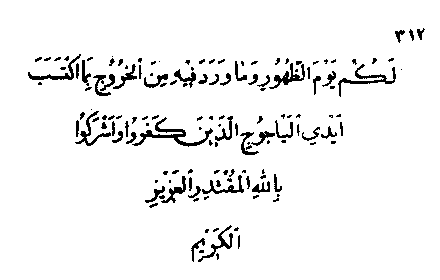 ٣١٢
لَكُمْ يَوْمَ الظُّهُورِ وَمَا وَرَدَ فِيهِ مِنَ الْخُرُوجِ بِمَا اكْتَسَبَ
اَيْدِي الْيَاجُوجِ الَّذِينَ كَفَرُوا وَاَشْرَكُوا
بِاللهِ الْمُقْتَدِرِ الْعَزِيزِ
الْكَرِيْمِ